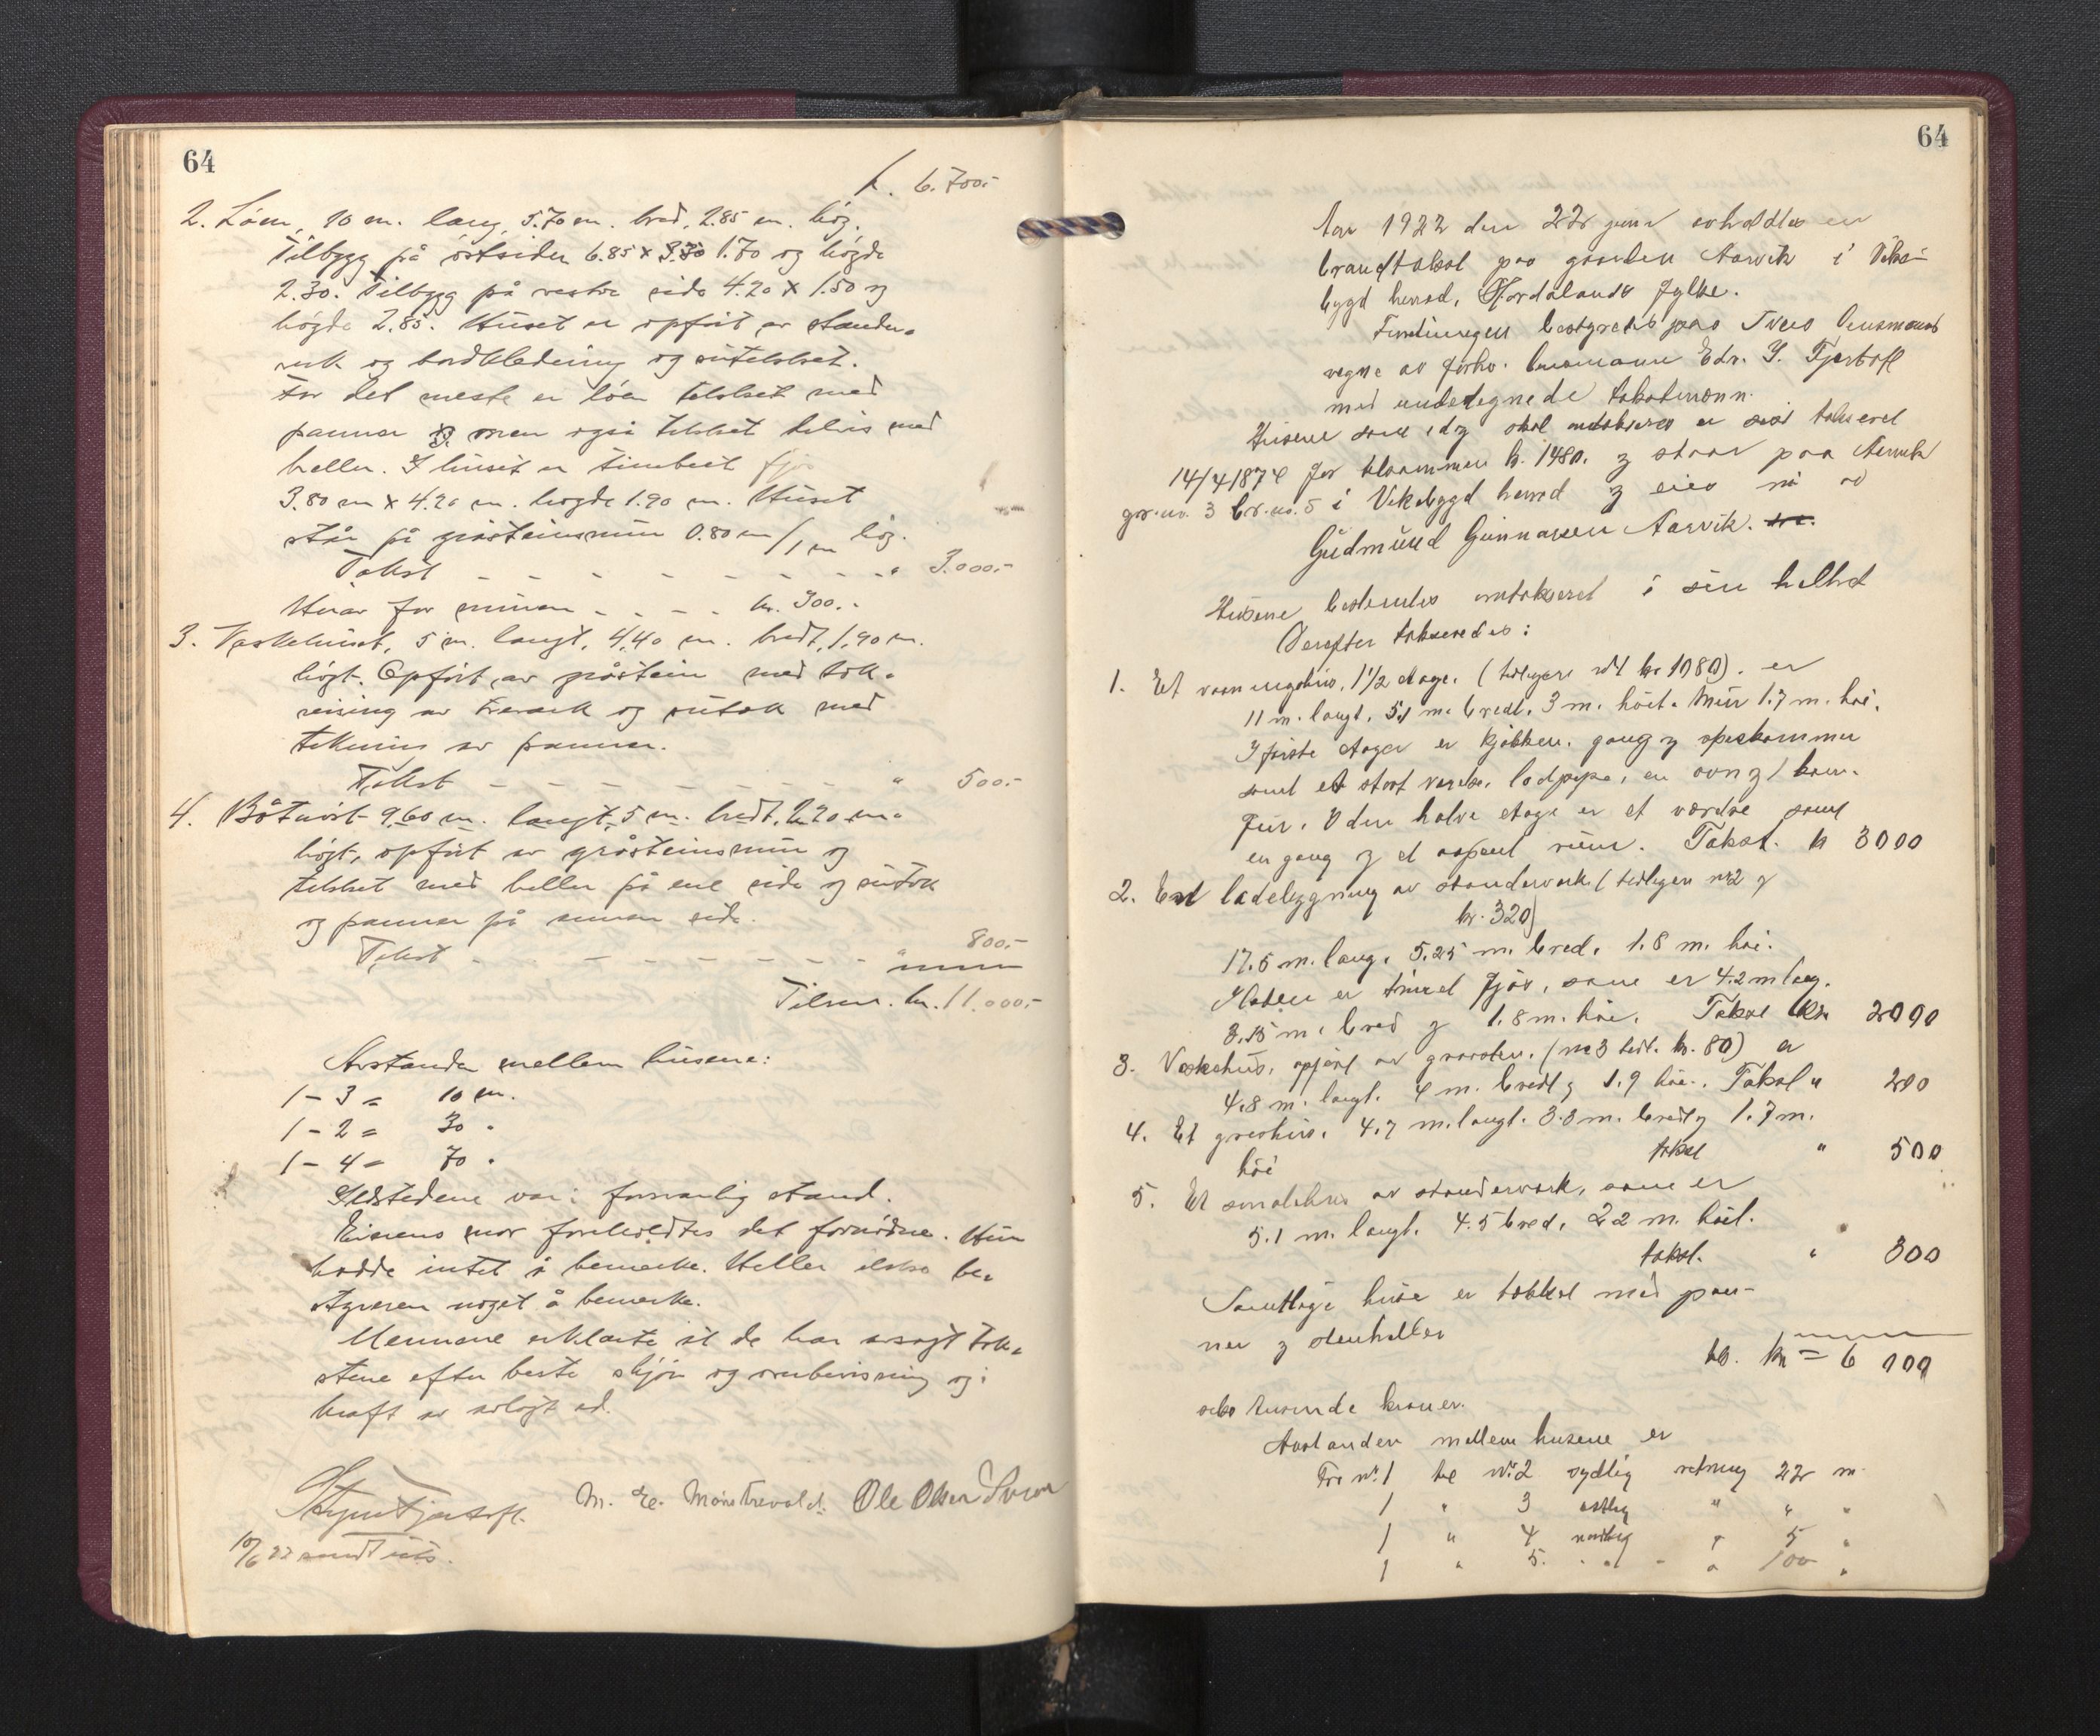 64
kr. 6.700.-
2. Løen, 10 m. lang, 5.70 m. bred, 2.85 m. høg.
Tilbygg på østsiden 6.85 x 3.30 1.70 og høgde
2.30. Tilbygg på vestre side 4.20 x 1.50 og
høgde 2.85. Huset er opført av stender-
verk og bordkledning og sutekket.
For det meste er løen tekket med
panner men også tekket delvis med
heller. I huset er timbret fjøs
3.80 m x 4.20 m. høgde 1.90 m. Huset
står på gråsteinsmur 0.80 m / 1 m høg.
Takst - - - - - - - - " 3.000.-
Herav for muren - - - - kr. 300.-
3. Vaskehuset, 5 m. langt, 4,40 m. bredt, 1,90 m.
høgt. Opført av gråstein med tak-
reising av treverk og sutak med
tekning av panner.
Takst - - - - - - - " 500.-
4. Båtnøst 9,60 m. langt, 5 m. bredt, 2,20 m.
høgt, opført av gråsteinsmur og
tekket med heller på ene side og sutak
og panner på annen side.
Takst - - - - - - - - " 800.-
Tilsm. kr. 11.000.-
Avstanden mellem husene:
1 - 3 = 10 m.
1 - 2 = 30 "
1 - 4 = 70 "
Ildstedene var i forsvarlig stand.
Eierens mor foreholdtes det fornødne. Hun
hadde intet å bemerke. Heller ikke be-
styreren noget å bemerke.
Mennene erklærte at de har avsagt tak-
stene efter beste skjøn og overbevisning og i
kraft av avlagt ed.
M. E. Mønstrevold. Ole Olsen
10/6 22 sendt
64
Aar 1922 den 22 juni avholdtes en
brandtakst paa gaarden Aarvik i Vikе-
bygd herred, Hordalands fylke.
Forretningen bestyredes paa Lensmanns
vegne av forhv. lensmann Edv. S. Fjortoft
med undertegnede takstmenn.
Husene som idag skal omtakseres er sist taksert
14/4 1874 for tilsammen kr. 1480. og staar paa Aarvik
gr.no. 3 br.no. 5 i Vikebygd herred og eies nå av
Gudmund Gunnarsen Aarvik.
Husene bestemtes omtaksert i sin helhet
Derefter takseredes:
1. Et vaaningshus, 1 1/2 etage. (tidligere no 1 kr. 1080). er
11 m. langt, 5.1 m. bredt, 3 m. høit. Mur 1.7 m. høi.
I første etage er kjøkken, gang og spiskammer
samt et stort værelse, lodpipe, en ovn og 1 kom-
fur. I den halve etage er et værelse samt
en gang og et aapent rum. Takst. kr 3000
2. En ladebygning av standerverk (tidligere no 2 og
kr. 320)
17.5 m. lang, 5.25 m. bred, 1.8 m. høi.
I laden er tømret fjøs, som er 4.2 m lang.
3.15 m. bred og 1.8 m. høi. Takst Kr. 2000
3. Vaskehus, opført av graasten. (no 3 tidl. kr. 80) er
4.8 m. langt. 4 m. bredt og 1.9 høi. Takst " 200
4. Et grishus. 4.7 m. langt. 3.3 m. bredt og 1.7 m.
høi takst " 500
5. Et smalehus av standerverk, som er
5.1 m. langt. 4.5 bred, 2.2 m. høit.
takst. " 300
Samtlige huse er tekket med pan-
ner og stenheller
kr = 6 000
seks tusende kroner.
Avstanden mellem husene er
Fra no. 1 til no. 2 sydlig retning 22 m
1 " 3 østlig " " "
1 " 4 nordlig " 5 "
1 " 5. " " " 100 "